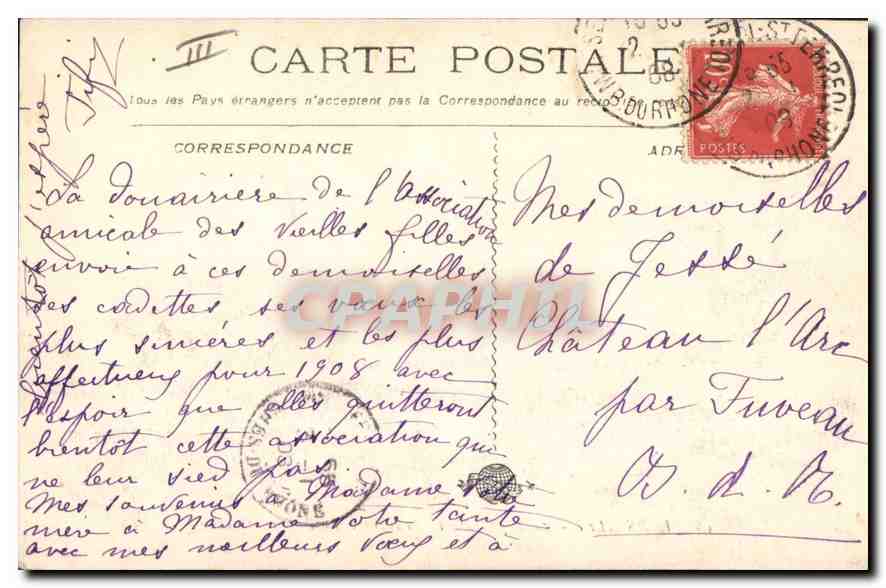 III
CARTE POSTALE
Tous les Pays étrangers n'acceptent pas la Correspondance au recto
CORRESPONDANCE
La douairière de l'Association
amicale des vieilles filles
envoie à ces demoiselles
ses cadettes ses vœux les
plus sincères et les plus
affectueux pour 1908 avec
l'espoir que elles quitteront
bientôt cette association qui
ne leur sied pas
Mes souvenirs Madame votre
mère à Madame votre tante
avec mes meilleurs vœux et à
bientôt j'espère
Fify
ADR
Mesdemoiselles
de Jessé
Château l'Arc
par Fuveau
B. d. R.
POSTES
CPAPHIL